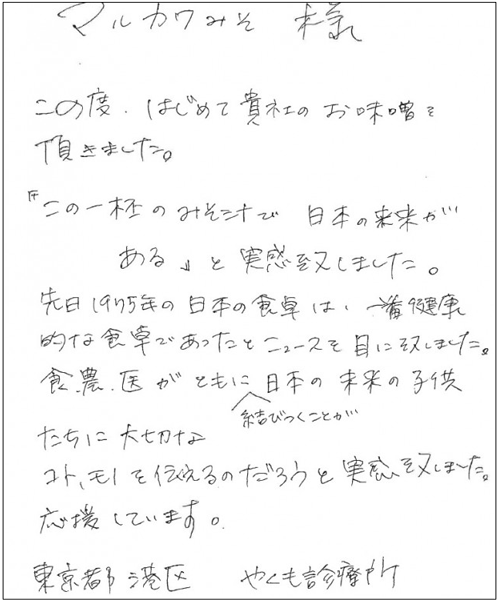 マルカワみそ 様
この度、はじめて貴社のお味噌を
頂きました。
『この一杯のみそ汁で 日本の未来が
ある』と実感致しました。
先日1975年の日本の食卓は、一番健康
的な食卓であったとニュースを目に致しました。
食、農、医がともに日本の未来の子供
結びつくことが
たちに大切な
コト、モノを伝えるのだろうと実感致しました。
応援しています。
東京都港区 やくも診療所